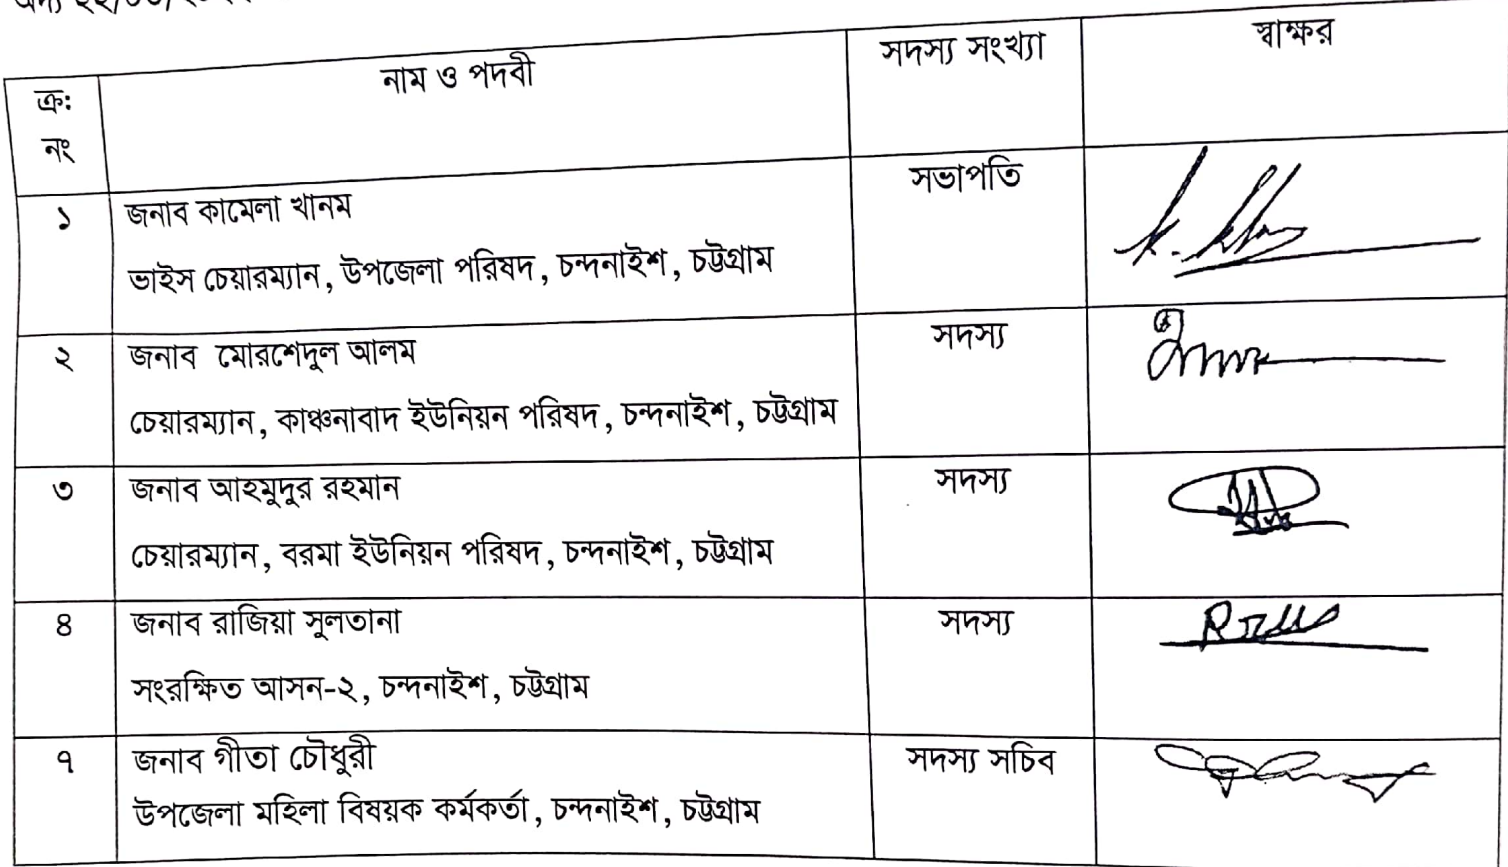 ক্র: নং	নাম ও পদবী	সদস্য সংখ্যা	স্বাক্ষর
১	জনাব কামেলা খানম	সভাপতি
ভাইস চেয়ারম্যান, উপজেলা পরিষদ, চন্দনাইশ, চট্টগ্রাম
২	জনাব মোরশেদুল আলম	সদস্য
চেয়ারম্যান, কাঞ্চনাবাদ ইউনিয়ন পরিষদ, চন্দনাইশ, চট্টগ্রাম
৩	জনাব আহমুদুর রহমান	সদস্য
চেয়ারম্যান, বরমা ইউনিয়ন পরিষদ, চন্দনাইশ, চট্টগ্রাম
৪	জনাব রাজিয়া সুলতানা	সদস্য
সংরক্ষিত আসন-২, চন্দনাইশ, চট্টগ্রাম
৭	জনাব গীতা চৌধুরী	সদস্য সচিব
উপজেলা মহিলা বিষয়ক কর্মকর্তা, চন্দনাইশ, চট্টগ্রাম